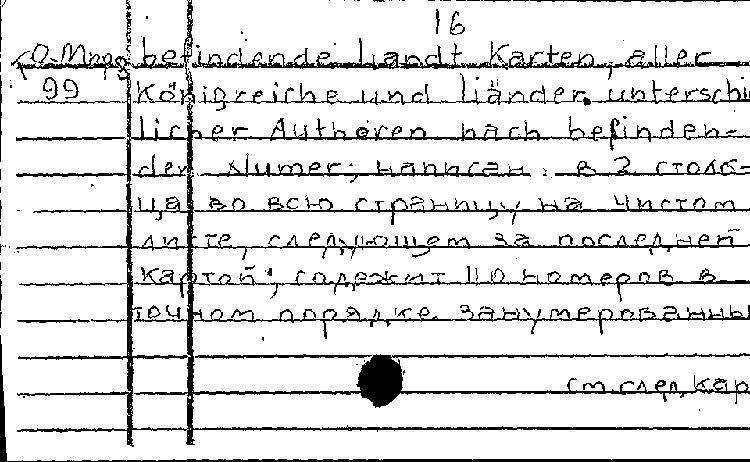 16
befindende Landt Karten, aller
99 Königreiche und Länder, unterschie
licher Authoren nach befinden-
den Numer; написан в 2 столб-
ца во всю страницу на чистом
листе, следующем за последней
картой; содежит 110 номеров в
точном порядке занумерованны
см. след. кар